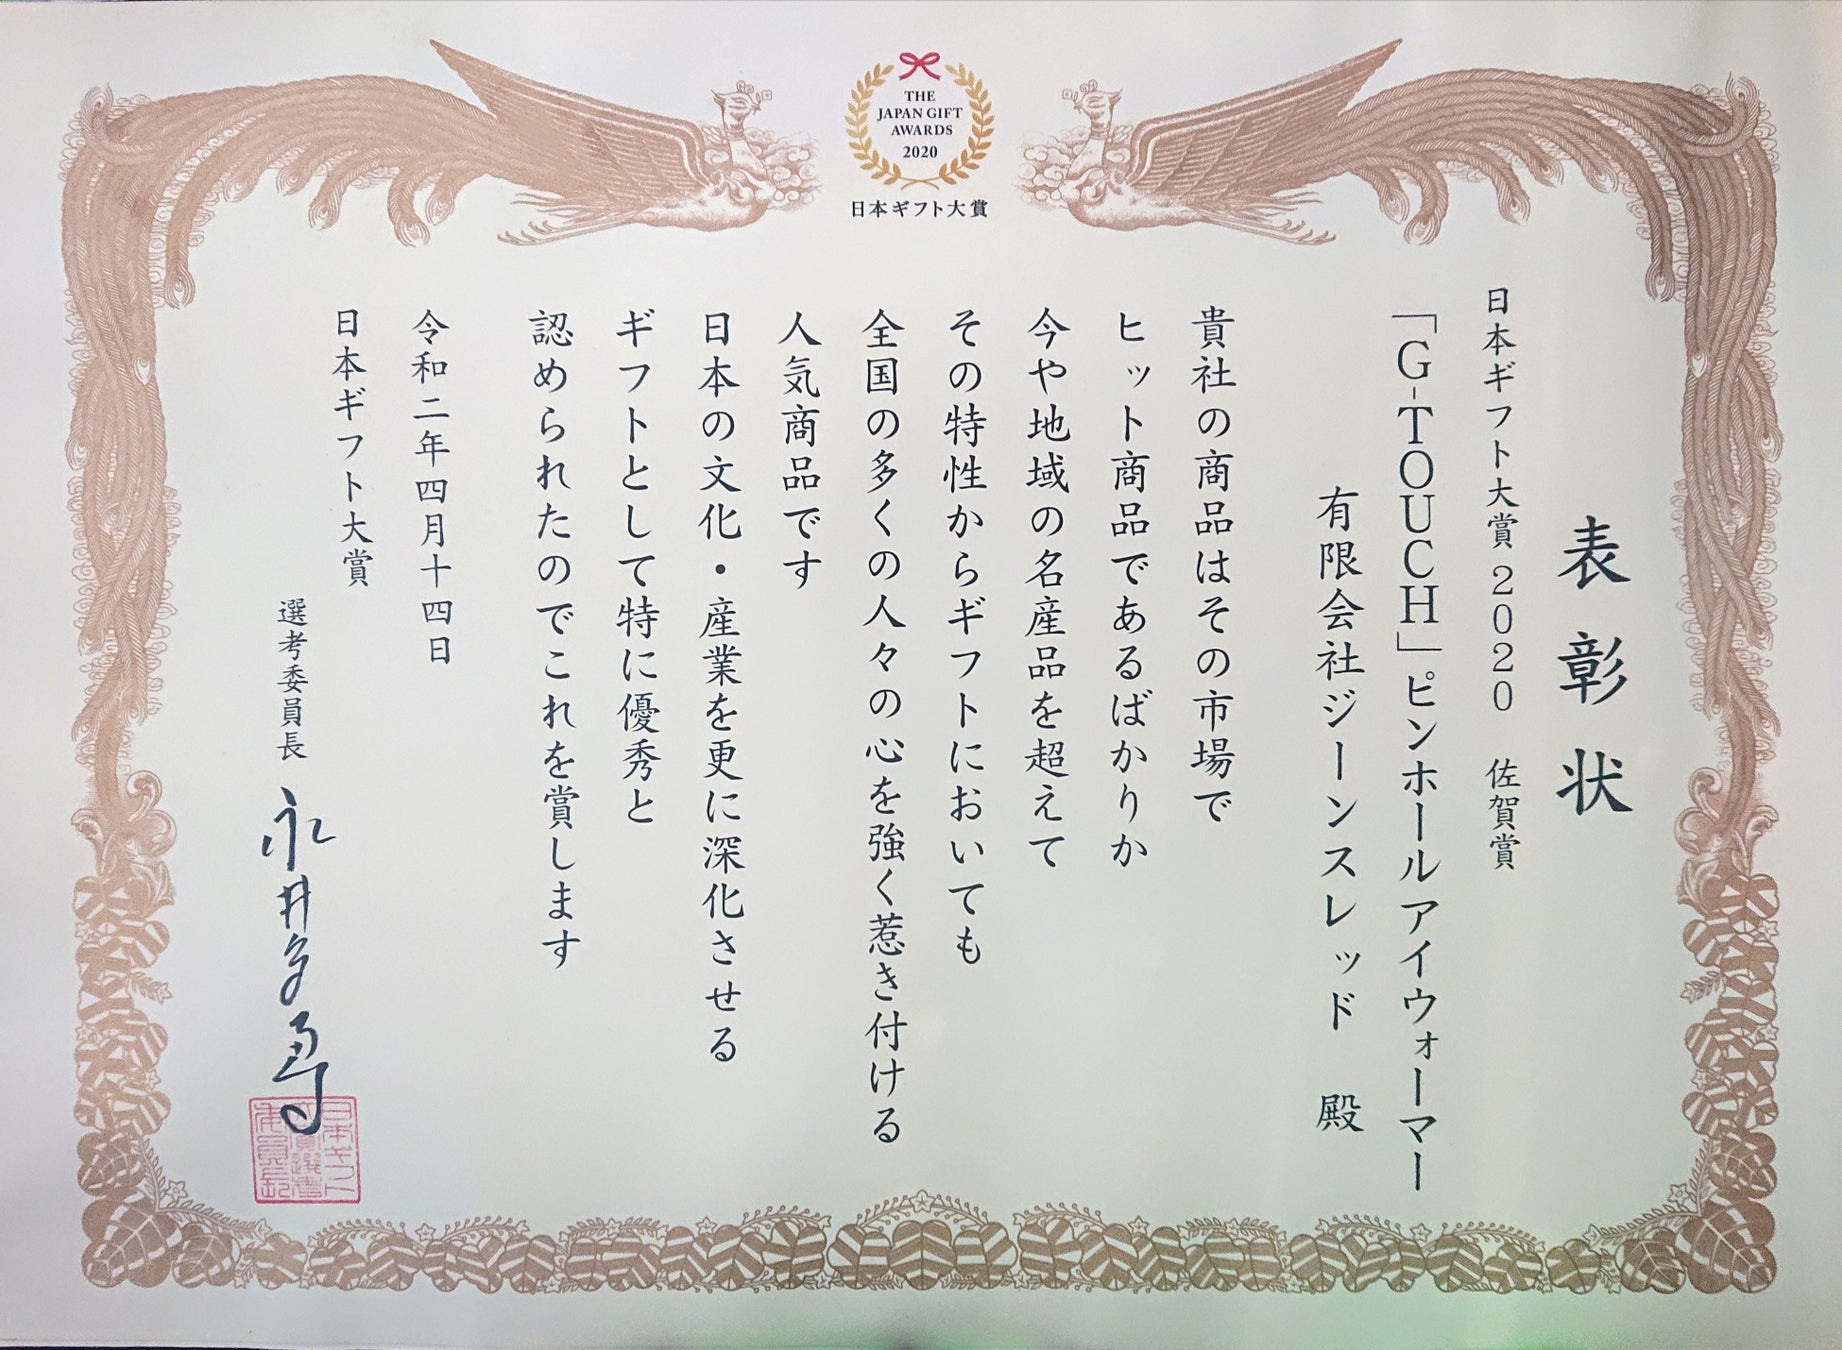 THE
JAPAN GIFT
AWARDS
2020
日本ギフト大賞
表彰状
日本ギフト大賞2020 佐賀賞
「G-TOUCH」ピンホールアイウォーマー
有限会社ジーンスレッド 殿
貴社の商品はその市場で
ヒット商品であるばかりか
今や地域の名産品を超えて
その特性からギフトにおいても
全国の多くの人々の心を強く惹き付ける
人気商品です
日本の文化・産業を更に深化させる
ギフトとして特に優秀と
認められたのでこれを賞します
令和二年四月十四日
日本ギフト大賞
選考委員長 永井多